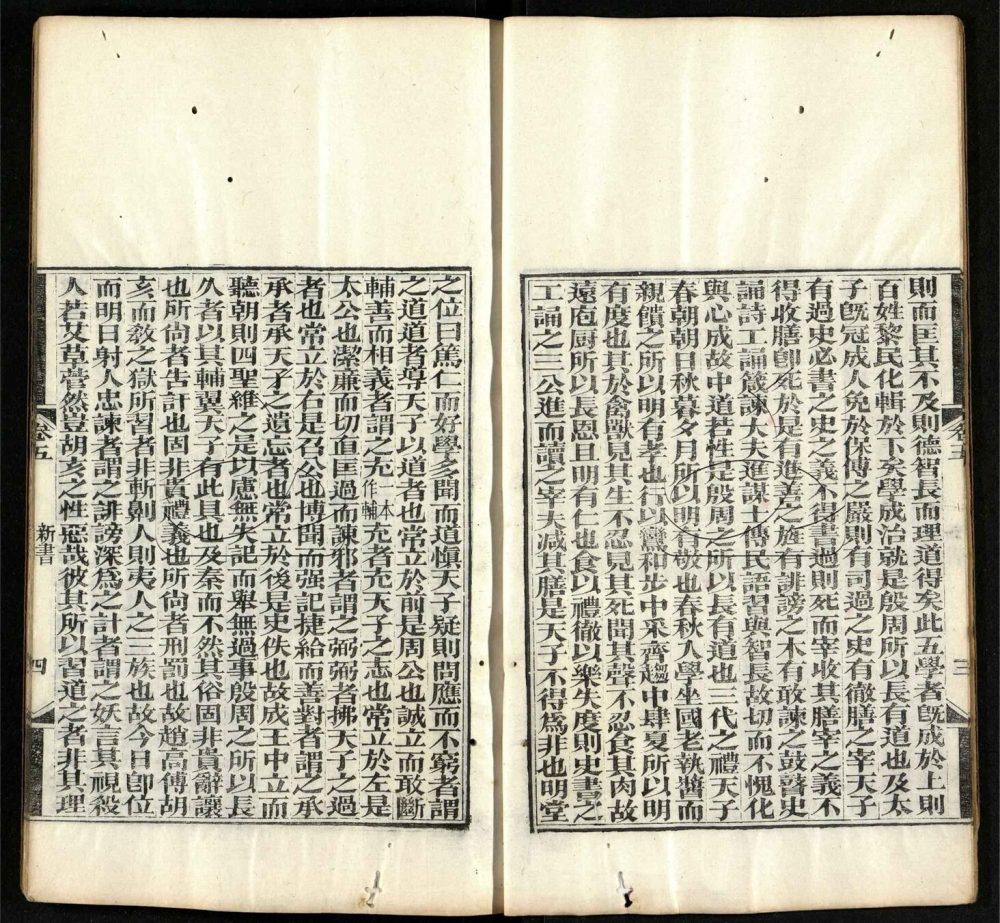 則而匡其不及則德智長而理道得矣此五學者旣成於上則
百姓黎民化輯於下矣學成治就是殷周所以長有道也及太
子旣冠成人免於保傅之嚴則有司過之史有徹膳之宰天子
有過史必書之史之義不得書過則死而宰收其膳宰之義不
得收膳卽死於是有進善之旌有誹謗之木有敢諫之鼓瞽史
誦詩工誦箴諫大夫進謀士傳民語習與智長故切而不愧化
與心成故中道若性是殷周之所以長有道也三代之禮天子
春朝朝日秋暮夕月所以明有敬也春秋入學坐國老執醬而
親饋之所以明有孝也行以鸞和步中采齊趨中肆夏所以明
有度也其於禽獸見其生不忍見其死聞其聲不忍食其肉故
遠庖厨所以長恩且明有仁也食以禮徹以樂失度則史書之
工誦之三公進而讀之宰夫減其膳是天子不得為非也明堂
卷五
三
之位曰篤仁而好學多聞而道愼天子疑則問應而不窮者謂
之道道者導天子以道者也常立於前是周公也誠立而敢斷
輔善而相義者謂之充一本作輔充者充天子之志也常立於左是
太公也潔廉而切直匡過而諫邪者謂之弼弼者拂天子之過
者也常立於右是召公也博聞而强記捷給而善對者謂之承
承者承天子之遺忘者也常立於後是史佚也故成王中立而
聽朝則四聖維之是以慮無失記而舉無過事殷周之所以長
久者以其輔翼天子有此具也及秦而不然其俗固非貴辭讓
也所尙者告訐也固非貴禮義也所尙者刑罰也故趙高傅胡
亥而敎之獄所習者非斬劓人則夷人之三族也故今日卽位
而明日射人忠諫者謂之誹謗深爲之計者謂之妖言其視殺
人若艾草菅然豈胡亥之性惡哉彼其所以習道之者非其理
卷五
新書
四